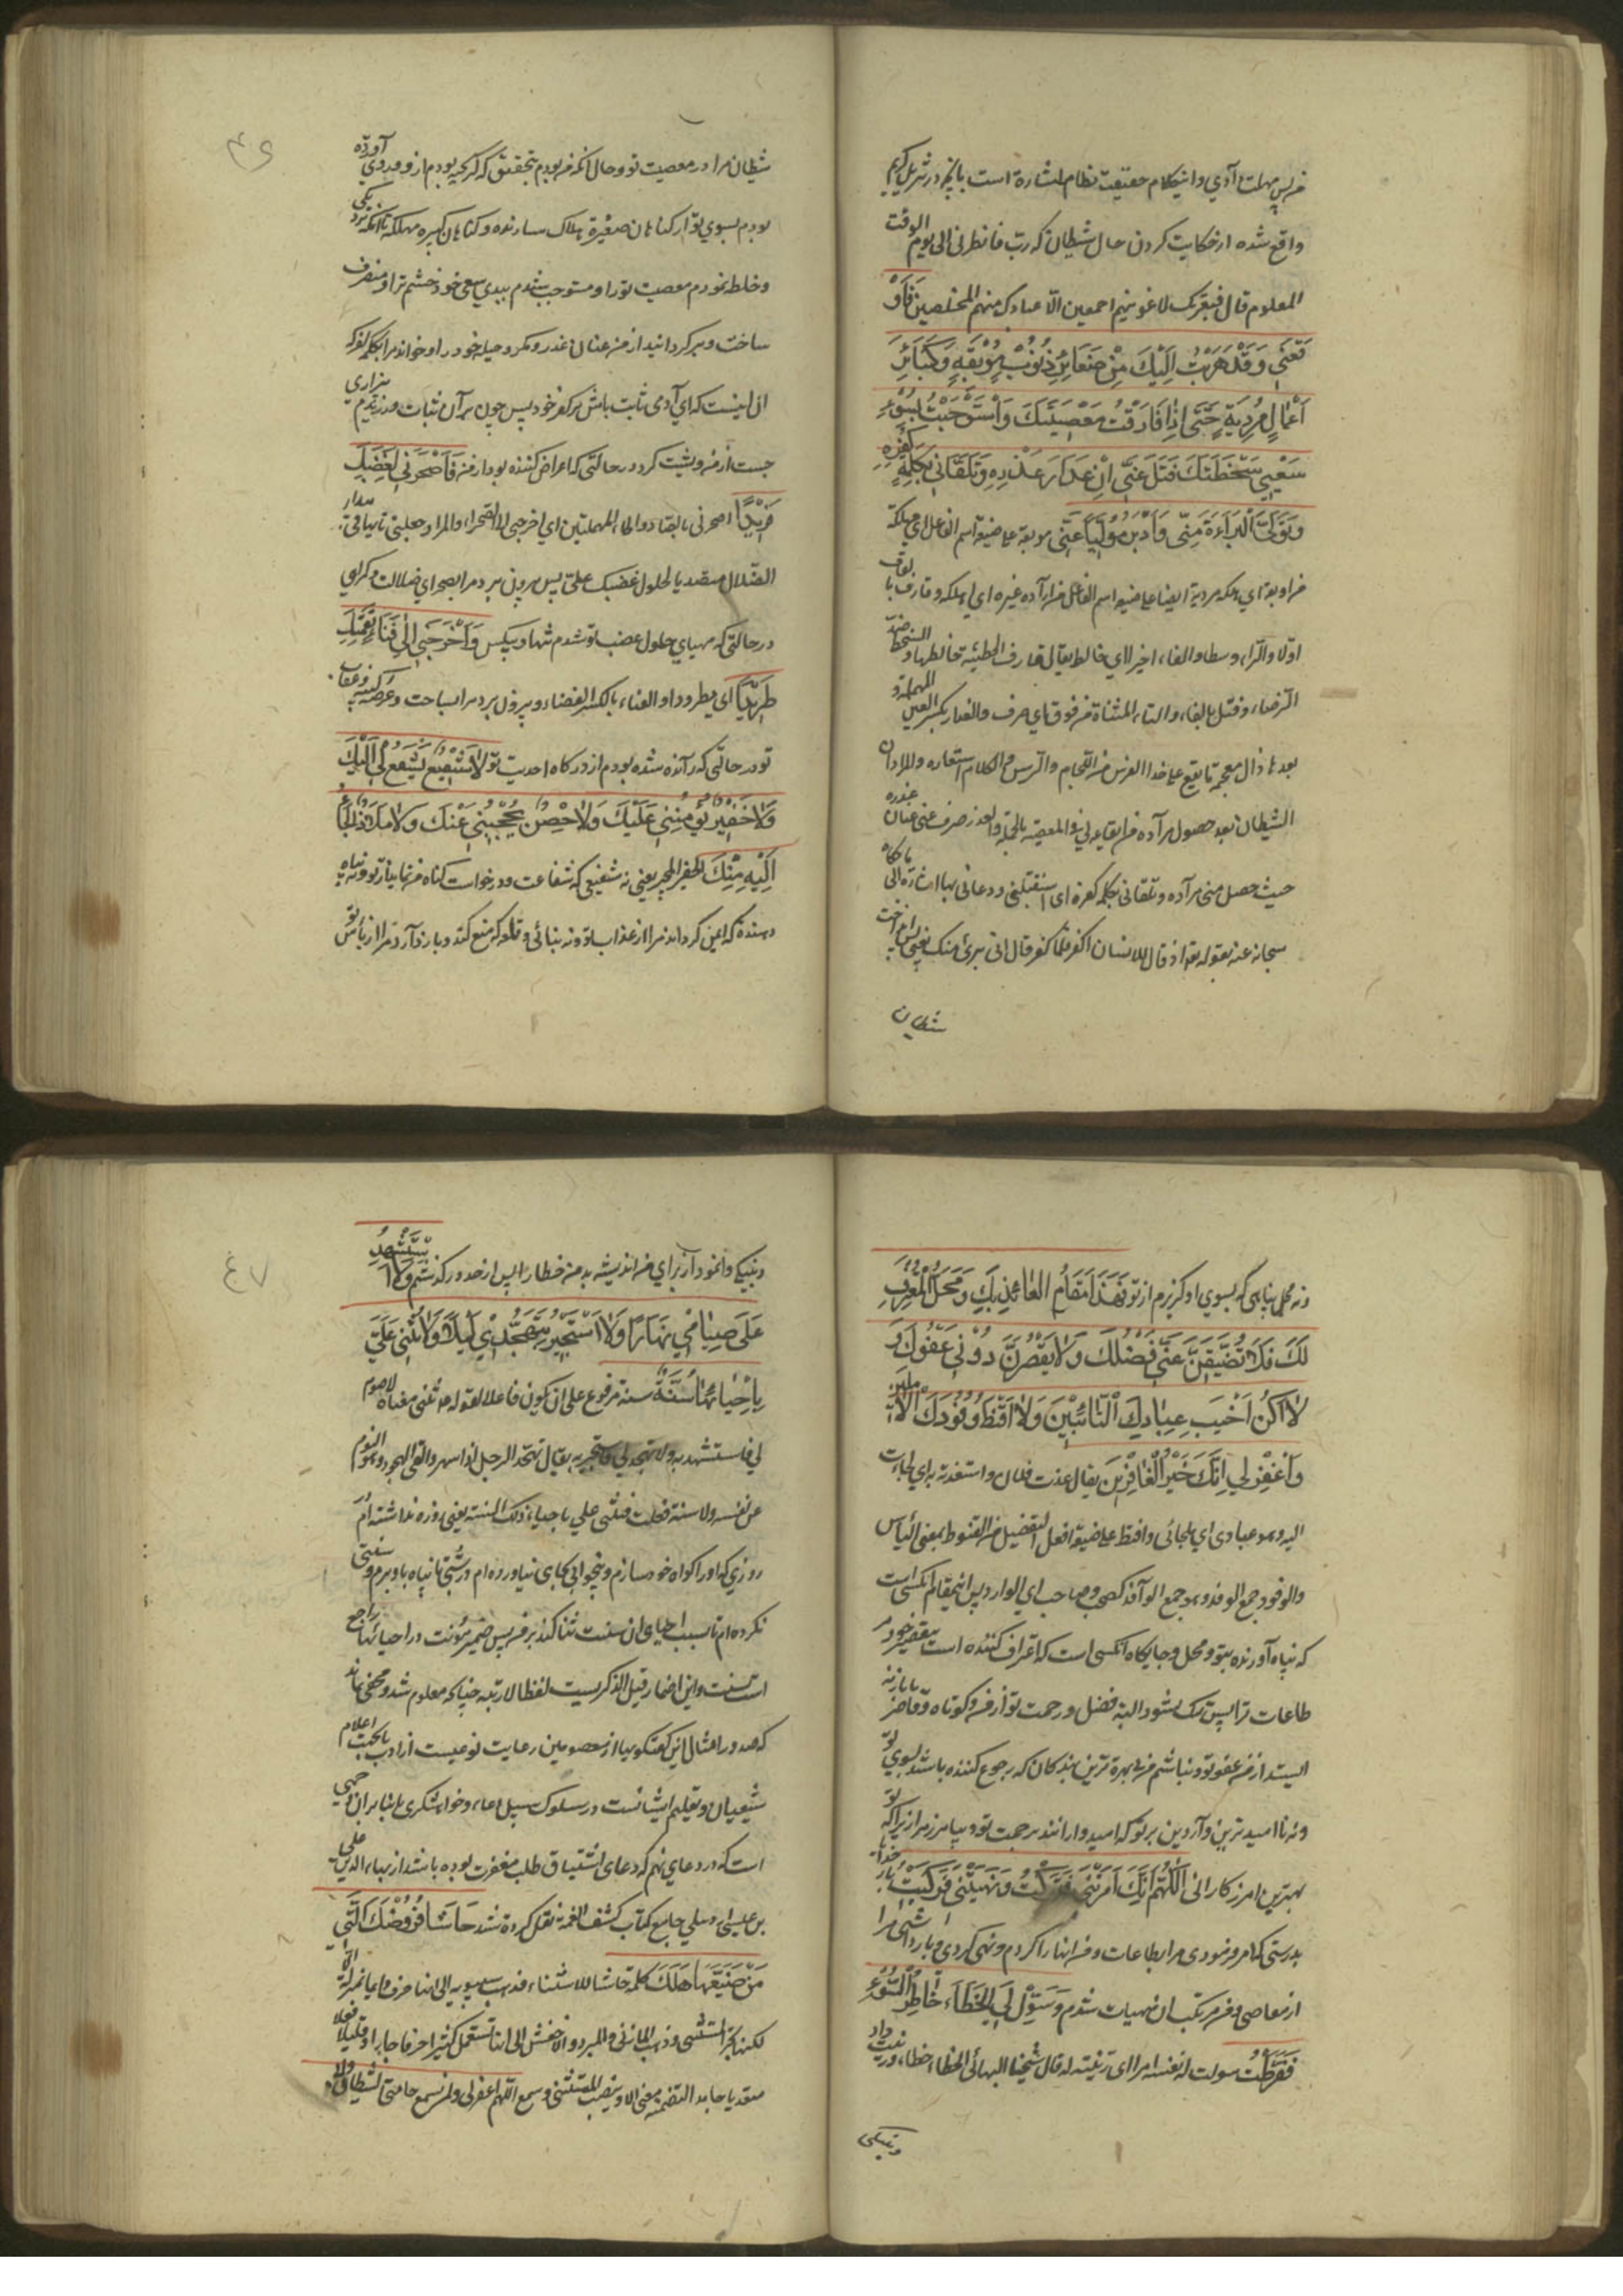 فریب مهلت دادی و اینکلام حقیقت نظام اشاره است بانچه در تنزیل کریم
واقع شده از حکایت کردن حال شیطان که رب فانظرنی الی یوم الوقت
المعلوم قال فبعزتک لاغوینهم اجمعین الا عبادک منهم المخلصین فَاَوْ
قَعَنِي وَقَدْ هَرَبْتُ اِلَيْكَ مِنْ صَغَائِرِ ذُنُوبٍ مُوْبِقَةٍ وَكَبَائِرِ
اَعْمَالٍ مُرْدِيَةٍ حَتّٰى اِذٰا قَارَفْتُ مَعْصِيَتَكَ وَاسْتَوْجَبْتُ بِسُوْءِ
سَعْيِي سَخْطَتَكَ فَتَلَ عَنّٰي اَنْ عِذَارَ عُذْرِهِ وَتَلَقَّانِي بِكَلِمَةِ كُفْرِهِ
وَتَوَلَّى الْبَرَاءَةَ مِنِّي وَاَدْبَرَ مُوَلِّيًا عَنِّي موبقة علی صیغة اسم الفاعل ای مهلکة
من اوبقه ای اهلکه مردیة ایضا علی صیغة اسم الفاعل من ارداه غیره ای اهلکه وقارف بالقاف
اولا والراء وسطا والفاء اخیرا ای خالط یقال قارف الخطیئة خالطها والسخط ضد
الرضاء وفتل بالفاء والتاء المثناة من فوق ای صرف والعذار بکسر العین المهملة و
بعدها ذال معجمة ما یقع علی خد الفرس من اللجام والرسن و الکلام استعاره والمراد ان
الشیطان بعد حصول مراده من ایقاعه لی فی المعصیة بالحیلة والغدر صرف عنی عنان غدره
حیث حصل منی مراده وتلقانی بکلمه کفره ای استقبلنی ودعانی بها اشارة الی ما حکاه
سبحانه عنه بقوله تعالی اذ قال للانسان اکفر فلما کفر قال انی بریء منک یعنی پس انداخت
شیطان
شیطان مرا در معصیت تو و حال آنکه من بودم بتحقیق که گریخته بودم از او و روی آورده
بودم بسوی تو از گناهان صغیرۀ هلاک سازنده و گناهان کبیره مهلکه تا آنکه نزدیکی
و خلط نمودم معصیت تو را و مستوجب شدم ببدی سعی خود خشم ترا و منصرف
ساخت و برگردانید از من عنان غدر و مکر و حیله خود را و خواند مرا بکلمه کفر که
ان اینست که ای آدمی ثابت باش بر کفر خود پس چون بر آن ثبات ورزیدم بیزاری
جست از من و پشت کرد در حالتی که اعراض کننده بود از من فَاَصْحَرَنِي لِغَضَبِكَ
فَرِيدًا اصحرنی بالصاد والحاء المهملتین ای اخرجنی الی الصحراء والمراد جعلنی تائها فی بیداء
الضلال متصدیا لحلول غضبک علی پس بیرون برد مرا بصحرای ضلالت و گمراهی
در حالتی که مهیای حلول غضب تو شدم تنها و بیکس وَاَخْرَجَنِي اِلٰى فِنَاءِ نَقِمَتِكَ
طَرِيدًا ای مطرودا و الفناء بالکسر الفضاء و بیرون برد مرا بساحت و عرصه کینه و عقاب
تو در حالتی که رانده شده بودم از درگاه احدیت تو لاٰ شَفِيعٌ يَشْفَعُ لِي اِلَيْكَ
وَلاٰ خَفِيرٌ يُؤْمِنُنِي عَلَيْكَ وَلاٰ حِصْنٌ يَحْجُبُنِي عَنْكَ وَلاٰ مَلاٰذٌ اَلْجَأُ
اِلَيْهِ مِنْكَ الخفیر المجیر یعنی نه شفیعی که شفاعت و درخواست گناه من نماید از تو و نه پناه
دهنده که ایمن گرداند مرا از عذاب تو و نه بنائی و قلعه که منع کند و باز دارد مرا از بأس تو
و نه محل پناهی که بسوی او گریزم از تو فَهَذَا مَقَامُ الْعَائِذِ بِكَ وَمَحَلُّ الْمُعْتَرِفِ
لَكَ فَلاٰ يَضِيقَنَّ عَنِّي فَضْلُكَ وَلاٰ يَقْصُرَنَّ دُوْنِي عَفْوُكَ وَ
لاٰ اَكُنْ اَخْيَبَ عِبَادِكَ التَّائِبِينَ وَلاٰ اَقْنَطَ وُفُوْدِكَ الْاٰمِلِينَ
وَاغْفِرْ لِي اِنَّكَ خَيْرُ الْغَافِرِينَ یقال عذت بفلان و استعذت به ای لجأت
الیه وهو عیاذی ای ملجائی واقنط علی صیغة افعل التفضیل من القنوط بمعنی الیأس
والوفود جمع الوفد وهو جمع الوافد کصحب و صاحب ای الوارد پس اینمقام آنکسی است
که پناه آورنده بتو و محل و جایگاه آنکسی است که اعتراف کننده است بتقصیر خود مر
طاعات ترا پس تنگ نشود البته فضل و رحمت تو از من و کوتاه و قاصر
نایستد از من عفو تو و نباشم من بی بهره ترین بندگان که رجوع کننده باشند بسوی تو
و نه ناامیدترین واردین بر تو که امیدوارانند برحمت تو و بیامرز مرا زیراکه تو
بهترین آمرزگارانی اَللّٰهُمَّ اِنَّكَ اَمَرْتَنِي فَتَرَكْتُ وَنَهَيْتَنِي فَرَكِبْتُ بار خدایا
بدرستی که امر فرمودی مرا بطاعات و من آنها را ترک کردم و نهی کردی و بازداشتی مرا
از معاصی و من مرتکب ان منهیات شدم وَسَوَّلَ لِيَ الْخَطَاءَ خَاطِرُ السُّوْءِ
فَفَرَّطْتُ سولت له نفسه امرا ای زینته له قال شیخنا البهائی الخطاء خطاء و زینت داد
و نیکی
و نیکی وانمود از برای من اندیشه بد من خطا را پس از حد در گذشتم وَلاٰ اَسْتَشْهِدُ
عَلٰى صِيَامِي نَهَارًا وَلاٰ اَسْتَجِيرُ بِتَهَجُّدِي لَيْلاً وَلاٰ تُثْنِي عَلَيَّ
بِاِحْيَائِهَا سُنَّةٌ سنة مرفوع علی ان یکون فاعلا لقوله تثنی معناه لا صوم
لی فاستشهد به ولا تهجد لی فاستجیر به یقال تهجد الرجل اذا سهر والقی الهجود وهو النوم
عن نفسه ولا سنة فعلت فتثنی علی باحیاء ذلک السنة یعنی روزه نداشته ام
روزی که او را گواه خود سازم و بیخوابی بجای نیاورده ام در شبی تا پناه باو برم و سنتی
نکرده ام تا بسبب احیای ان سنت ثنا کند بر من پس ضمیر مؤنث در احیائها راجع
است بسنت و این اضمار قبل الذکر نیست لفظا لا رتبة چنانکه معلوم شد و مخفی نماند
که صدور امثال این گفتگوها از معصومین رعایت نوعیست از ادب بجهت اعلام
شیعیان و تعلیم ایشانست در سلوک سبیل دعاء و خواهشگری
است که در دعای نهم که دعای اشتیاق طلب مغفرت بوده باشد از بهاء الدین علی
بن عیسی اربلی جامع کتاب کشف الغمة نقل کرده شد حَاشَا فُرُوضَكَ الَّتِي
مَنْ ضَيَّعَهَا هَلَكَ کلمه حاشا للاستثناء فذهب سیبویه الی انها حرف دائما بمنزلة الا
لکنها تجر المستثنی وذهب المازنی والمبرد والاخفش الی انها تستعمل کثیرا حرفا جارا وقلیلا فعلا
متعدیا جامدا لتضمنه معنی الا وینصب المستثنی وسمع اللهم اغفر لی ولمن یسمع حاشا الشیطان ولا